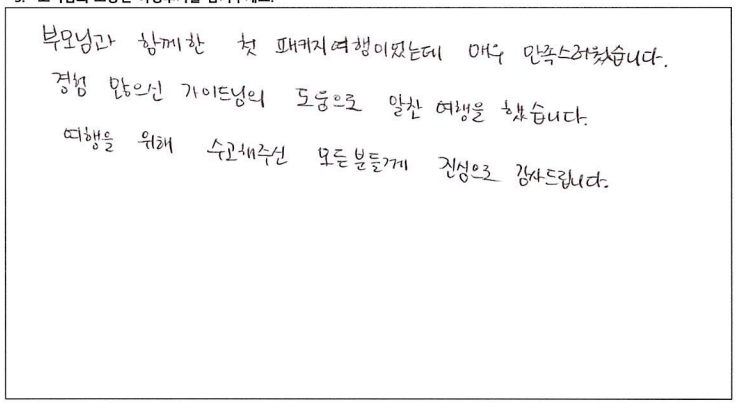 부모님과 함께한 첫 패키지여행이었는데 매우 만족스러웠습니다.
경험 많으신 가이드님의 도움으로 알찬 여행을 했습니다.
여행을 위해 수고해주신 모든분들께 진심으로 감사드립니다.